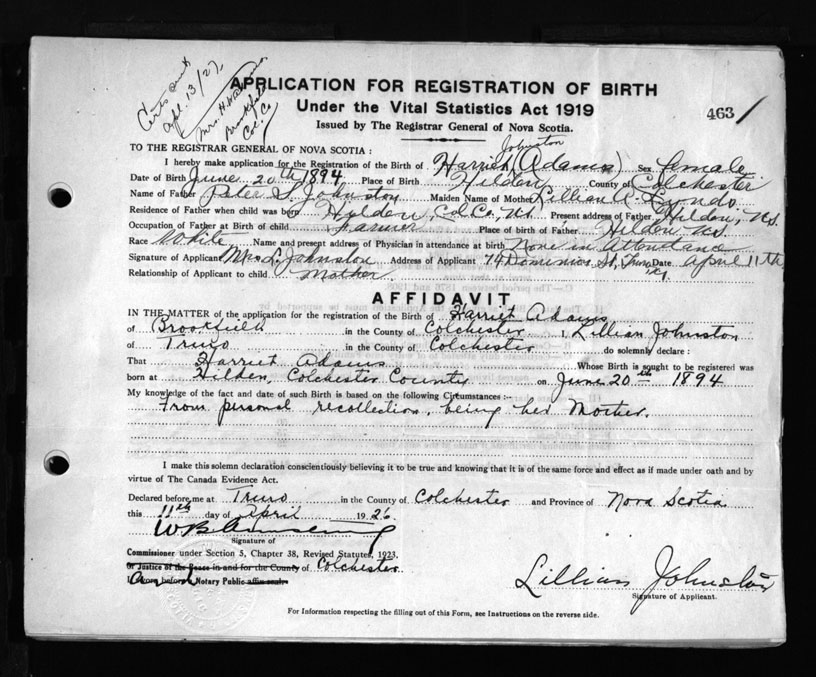 Certs sent
Apl. 13/27
Mrs. H. Adams
Brookfield
Col. Co.
APPLICATION FOR REGISTRATION OF BIRTH
Under the Vital Statistics Act 1919
Issued by The Registrar General of Nova Scotia.
463
TO THE REGISTRAR GENERAL OF NOVA SCOTIA :
Johnston
I hereby make application for the Registration of the Birth of Harriet (Adams) Sex female
Date of Birth June 20th 1894 Place of Birth Hilden County of Colchester
Name of Father Peter S. Johnston Maiden Name of Mother Lillian A. Lynds
Residence of Father when child was born Hilden, Col. Co., N.S. Present address of Father Hilden, N.S.
Occupation of Father at Birth of child farmer Place of birth of Father Hilden N.S.
Race White Name and present address of Physician in attendance at birth None in Attendance
Signature of Applicant Mrs L. Johnston Address of Applicant 74 Dominion St, Truro Date April 11th
Relationship of Applicant to child Mother
AFFIDAVIT
IN THE MATTER of the application for the registration of the Birth of Harriet Adams
of Brookfield in the County of Colchester I, Lillian Johnston
of Truro in the County of Colchester do solemnly declare :
That Harriet Adams Whose Birth is sought to be registered was
born at Hilden, Colchester County on June 20th 1894
My knowledge of the fact and date of such Birth is based on the following Circumstances :-
From personal recollection, being her Mother.
I make this solemn declaration conscientiously believing it to be true and knowing that it is of the same force and effect as if made under oath and by
virtue of The Canada Evidence Act.
Declared before me at Truro in the County of Colchester and Province of Nova Scotia
this 11th day of April 1926
Signature of
Commissioner under Section 5, Chapter 38, Revised Statutes, 1923.
Or Justice of the Peace in and for the County of Colchester
Notary Public
Lillian Johnston
Signature of Applicant.
For Information respecting the filling out of this Form, see Instructions on the reverse side.